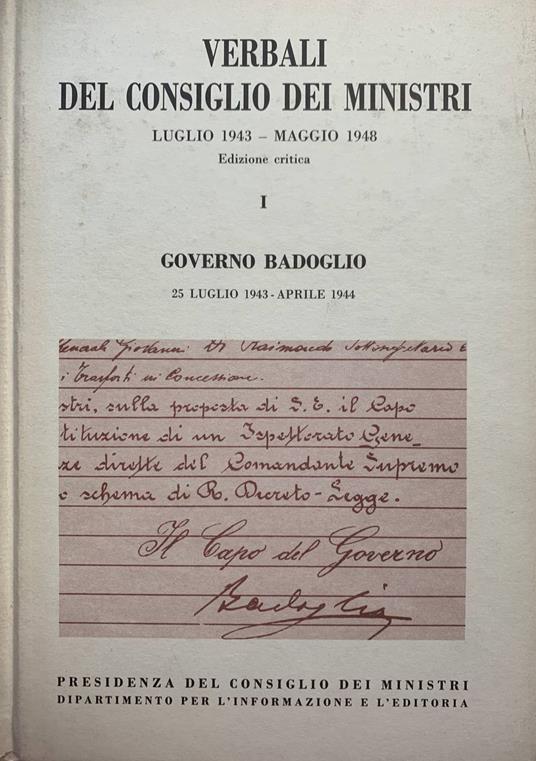 VERBALI
DEL CONSIGLIO DEI MINISTRI
LUGLIO 1943 – MAGGIO 1948
Edizione critica
I
GOVERNO BADOGLIO
25 LUGLIO 1943 - APRILE 1944
Giovanni Di Raimondo Sottosegretario
i Trasporti in Concessione.
stri, sulla proposta di S. E. il Capo
tituzione di un Ispettorato Gene_
ze dirette del Comandante Supremo
o schema di R. Decreto-Legge.
Il Capo del Governo
Badoglio
PRESIDENZA DEL CONSIGLIO DEI MINISTRI
DIPARTIMENTO PER L'INFORMAZIONE E L'EDITORIA